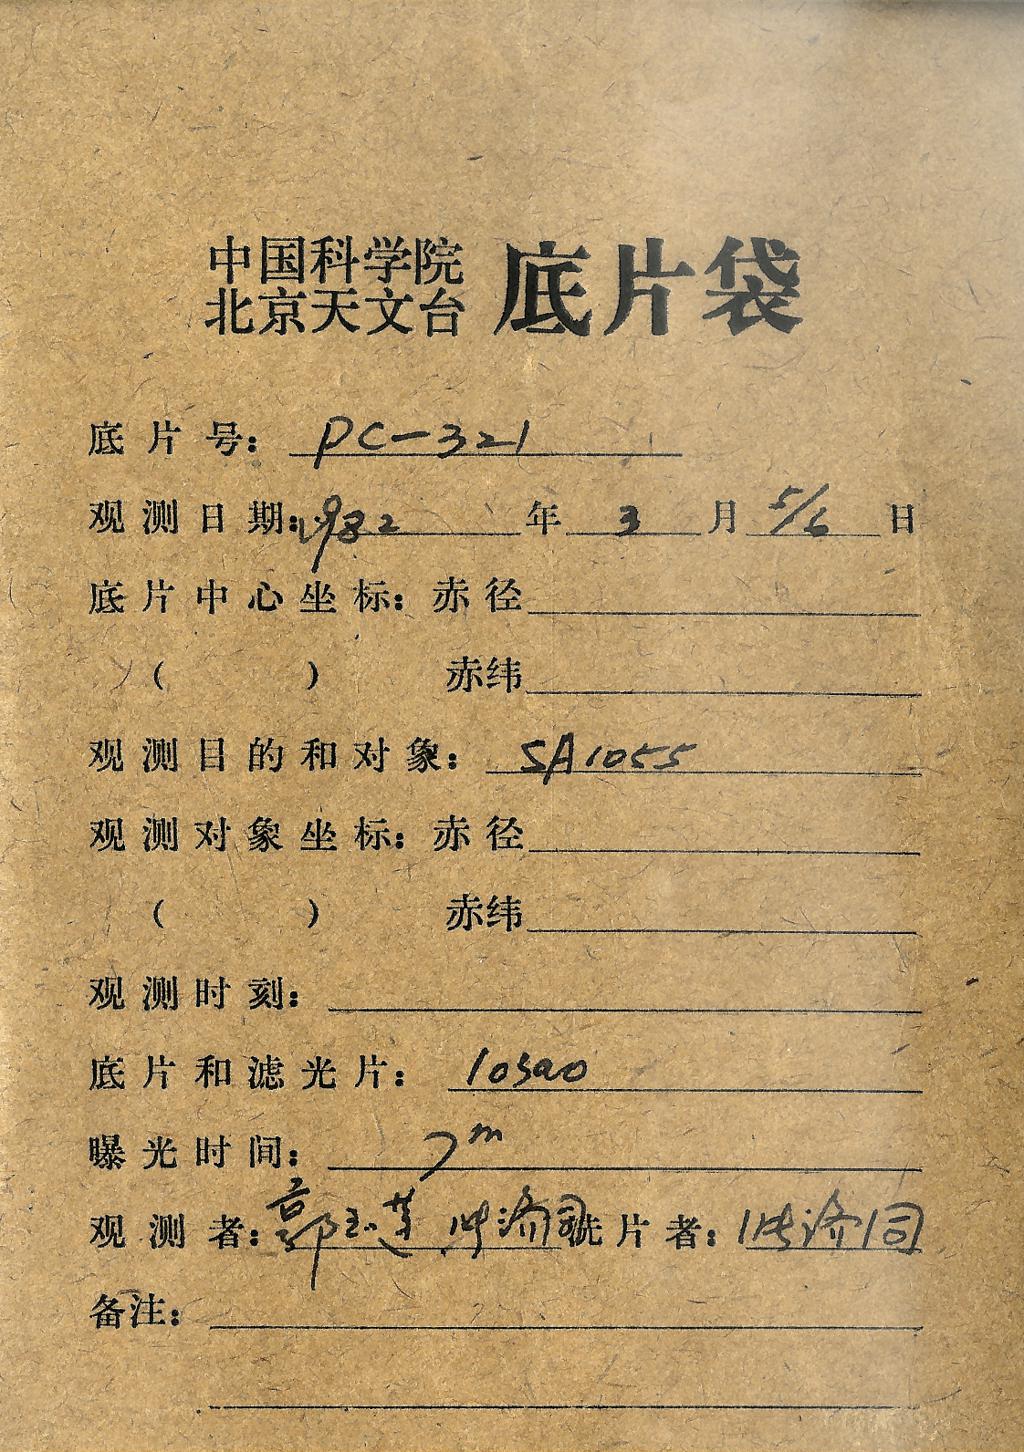 中国科学院
北京天文台 底片袋
底片号: PC-321
观测日期: 1982 年 3 月 5/6 日
底片中心坐标: 赤径
( ) 赤纬
观测目的和对象: SA1055
观测对象坐标: 赤径
( ) 赤纬
观测时刻:
底片和滤光片: 103aO
曝光时间: 7m
观测者: 郭玉莲 济同 洗片者: 济同
备注: